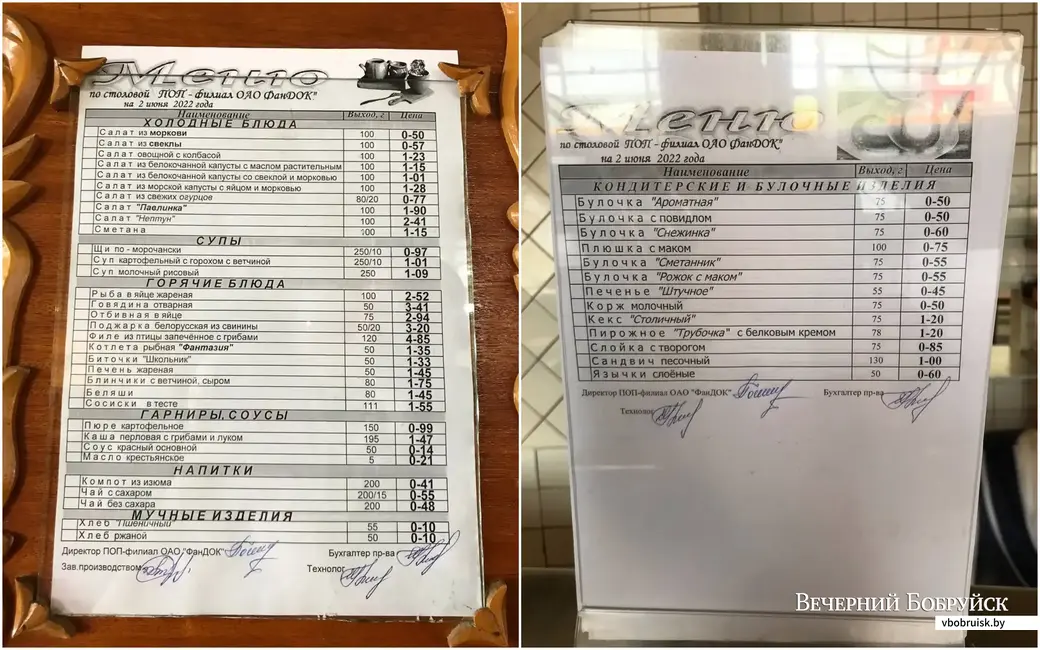 Меню
по столовой ПОП - филиал ОАО ФанДОК"
на 2 июня 2022 года
Наименование Выход, г Цена
ХОЛОДНЫЕ БЛЮДА
Салат из моркови 100 0-50
Салат из свеклы 100 0-57
Салат овощной с колбасой 100 1-23
Салат из белокочанной капусты с маслом растительным 100 1-15
Салат из белокочанной капусты со свеклой и морковью 100 1-01
Салат из морской капусты с яйцом и морковью 100 1-28
Салат из свежих огурцов 80/20 0-77
Салат "Павлинка" 100 1-90
Салат "Нептун" 100 2-41
Сметана 100 1-15
СУПЫ
Щи по - морочански 250/10 0-97
Суп картофельный с горохом с ветчиной 250/10 1-01
Суп молочный рисовый 250 1-09
ГОРЯЧИЕ БЛЮДА
Рыба в яйце жареная 100 2-52
Говядина отварная 50 3-41
Отбивная в яйце 75 2-94
Поджарка белорусская из свинины 50/20 3-20
Филе из птицы запечённое с грибами 120 4-85
Котлета рыбная "Фантазия" 50 1-35
Биточки "Школьник" 50 1-33
Печень жареная 50 1-45
Блинчики с ветчиной, сыром 80 1-75
Беляши 80 1-45
Сосиски в тесте 111 1-55
ГАРНИРЫ, СОУСЫ
Пюре картофельное 150 0-99
Каша перловая с грибами и луком 195 1-47
Соус красный основной 50 0-14
Масло крестьянское 5 0-21
НАПИТКИ
Компот из изюма 200 0-41
Чай с сахаром 200/15 0-55
Чай без сахара 200 0-48
МУЧНЫЕ ИЗДЕЛИЯ
Хлеб "Пшеничный" 55 0-10
Хлеб ржаной 50 0-10
Директор ПОП-филиал ОАО "ФанДОК" Бухгалтер пр-ва
Зав.производством Технолог
Меню
по столовой ПОП - филиал ОАО ФанДОК"
на 2 июня 2022 года
Наименование Выход, г Цена
КОНДИТЕРСКИЕ И БУЛОЧНЫЕ ИЗДЕЛИЯ
Булочка "Ароматная" 75 0-50
Булочка с повидлом 75 0-50
Булочка "Снежинка" 75 0-60
Плюшка с маком 100 0-75
Булочка "Сметанник" 75 0-55
Булочка "Рожок с маком" 75 0-55
Печенье "Штучное" 55 0-45
Корж молочный 75 0-50
Кекс "Столичный" 75 1-20
Пирожное "Трубочка" с белковым кремом 78 1-20
Слойка с творогом 75 0-85
Сандвич песочный 130 1-00
Язычки слоёные 50 0-60
Директор ПОП-филиал ОАО "ФанДОК" Бухгалтер пр-ва
Технолог
Вечерний Бобруйск
vbobruisk.by